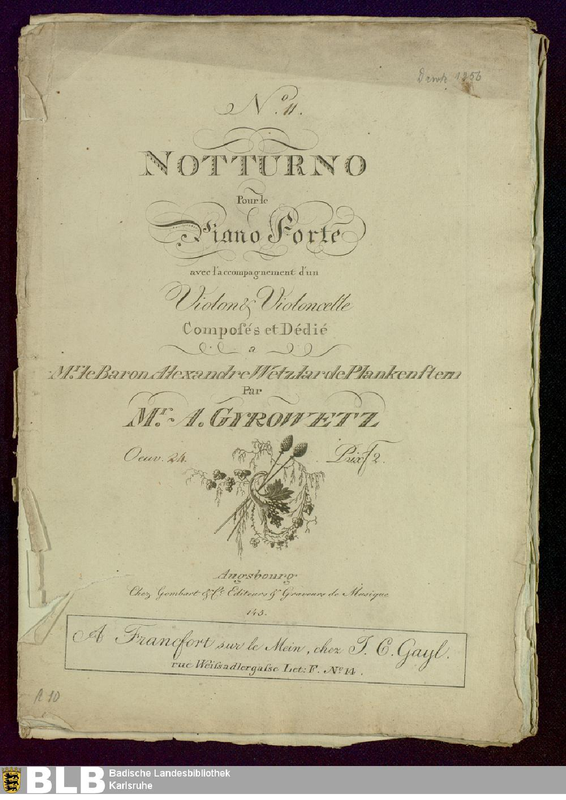 Druck 1856
N.º 11.
NOTTURNO
Pour le
Piano Forte
avec l'accompagnement d'un
Violon & Violoncelle
Composés et Dédié
a
Mr. le Baron Alexandre Wetzlar de Plankenstern
Par
Mr. A. GYROWETZ
Oeuv. 24. Prix f 2.
Augsbourg
Chez Gombart & Cº. Editeurs & Graveurs de Musique
145.
A Francfort sur le Mein, chez J. C. Gayl.
rue Weissadlergasse Let: F. Nº 14.
A 10
BLB Badische Landesbibliothek
Karlsruhe